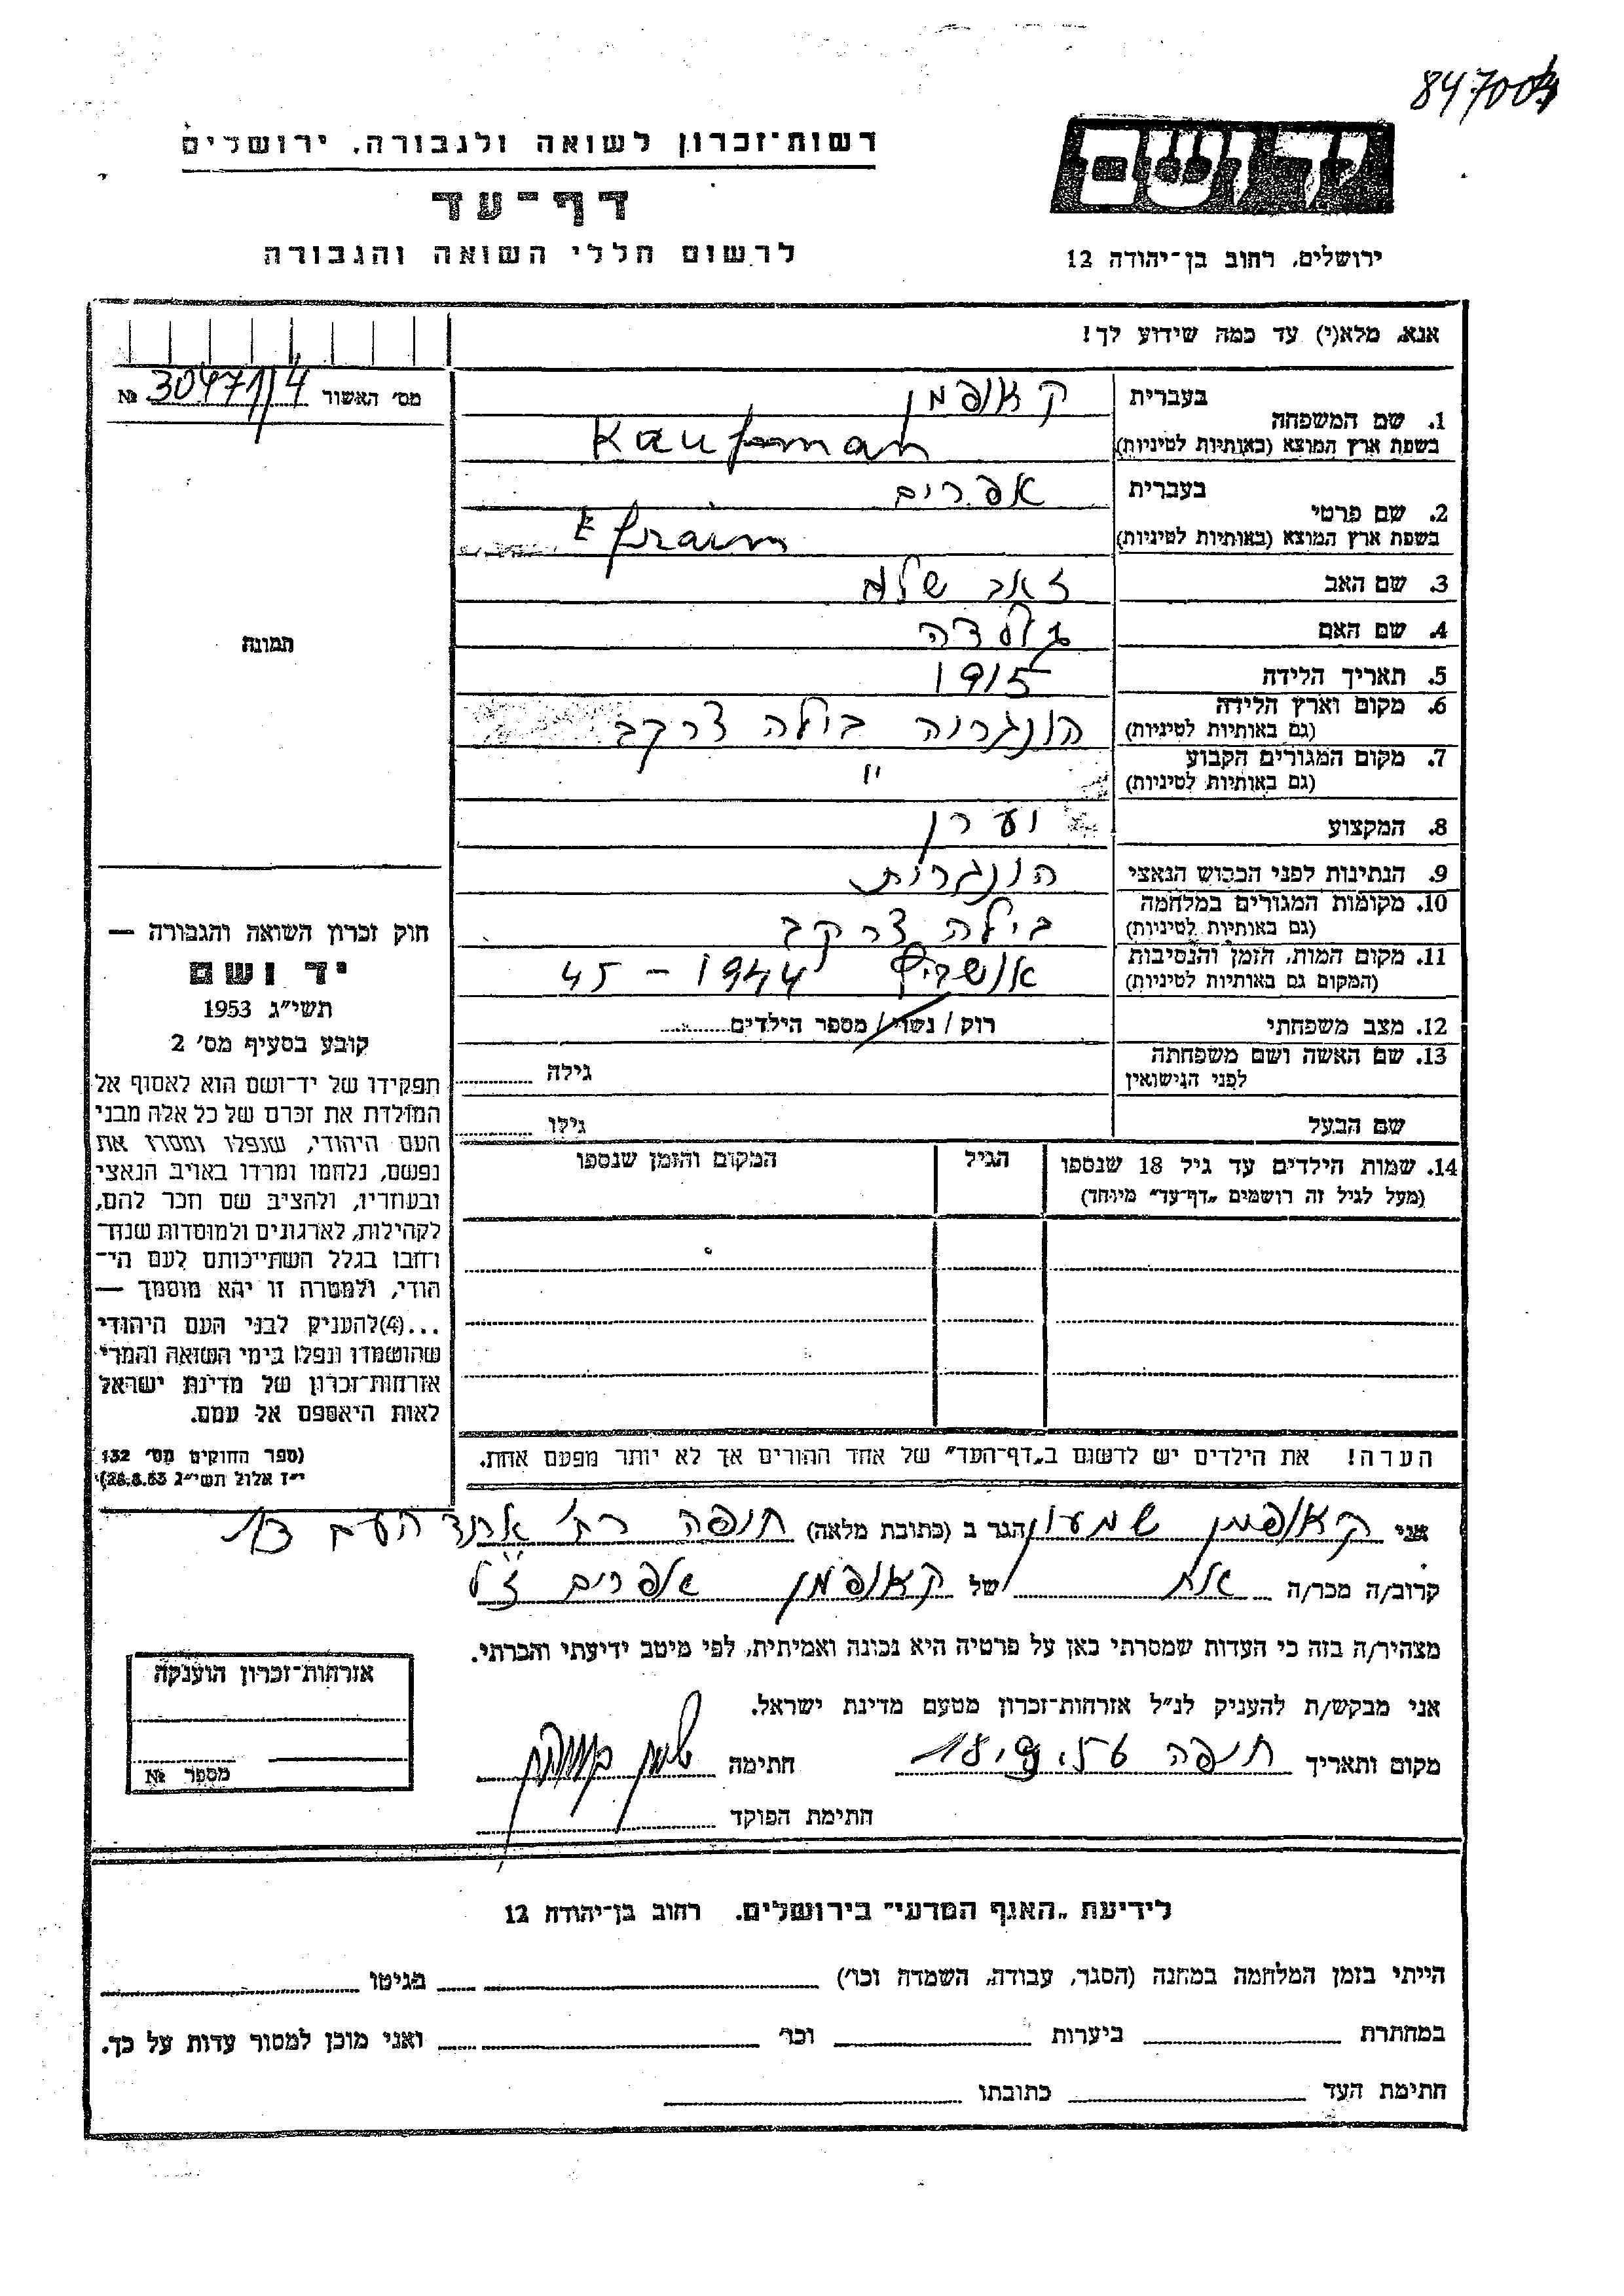 847004
יד ושם
רשות-זכרון לשואה ולגבורה, ירושלים
דף-עד
לרשום חללי השואה והגבורה
ירושלים, רחוב בן-יהודה 12
אנא, מלא(י) עד כמה שידוע לך!
מס' האשור 30471/4 №
בעברית קאופמן
1. שם המשפחה
בשפת ארץ המוצא (באותיות לטיניות) Kaufman
בעברית אפרים
2. שם פרטי
בשפת ארץ המוצא (באותיות לטיניות) Efraim
3. שם האב זאב
4. שם האם גולדה
5. תאריך הלידה 1915
6. מקום וארץ הלידה הונגריה בילה צרקב
(גם באותיות לטיניות)
7. מקום המגורים הקבוע "
(גם באותיות לטיניות)
8. המקצוע
9. הנתינות לפני הכבוש הנאצי הונגרית
10. מקומות המגורים במלחמה בילה צרקב
(גם באותיות לטיניות)
11. מקום המות, הזמן והנסיבות אושביץ 1944 - 45
(המקום גם באותיות לטיניות)
12. מצב משפחתי רוק / נשוי / מספר הילדים
13. שם האשה ושם משפחתה גילה
לפני הנישואין
שם הבעל גילו
14. שמות הילדים עד גיל 18 שנספו הגיל המקום והזמן שנספו
(מעל לגיל זה רושמים „דף-עד" מיוחד)
הערה! את הילדים יש לרשום ב„דף-העד" של אחד ההורים אך לא יותר מפעם אחת.
תמונה
חוק זכרון השואה והגבורה —
יד ושם
תשי"ג 1953
קובע בסעיף מס' 2
תפקידו של יד-ושם הוא לאסוף אל
המולדת את זכרם של כל אלה מבני
העם היהודי, שנפלו ומסרו את
נפשם, נלחמו ומרדו באויב הנאצי
ובעוזריו, ולהציב שם וזכר להם,
לקהילות, לארגונים ולמוסדות שנח-
רבו בגלל השתייכותם לעם הי-
הודי, ולמטרה זו יהא מוסמך —
...(4)להעניק לבני העם היהודי
שהושמדו ונפלו בימי השואה והמרי
אזרחות-זכרון של מדינת ישראל
לאות היאספם אל עמם.
(ספר החוקים מס' 132
י"ז אלול תשי"ג 28.8.53)
אני קאופמן שמעון הגר ב (כתובת מלאה) חיפה רח' אחד העם
קרוב/ה מכר/ה אח של קאופמן אפרים ז"ל
מצהיר/ה בזה כי העדות שמסרתי כאן על פרטיה היא נכונה ואמיתית, לפי מיטב ידיעתי והכרתי.
אני מבקש/ת להעניק לנ"ל אזרחות-זכרון מטעם מדינת ישראל.
מקום ותאריך חיפה 18.9.56 חתימה
חתימת הפוקד
אזרחות-זכרון הוענקה
מספר №
לידיעת „האגף המדעי" בירושלים. רחוב בן-יהודה 12
הייתי בזמן המלחמה במחנה (הסגר, עבודה, השמדה וכו') בגיטו
במחתרת ביערות וכו' ואני מוכן למסור עדות על כך.
חתימת העד כתובתו